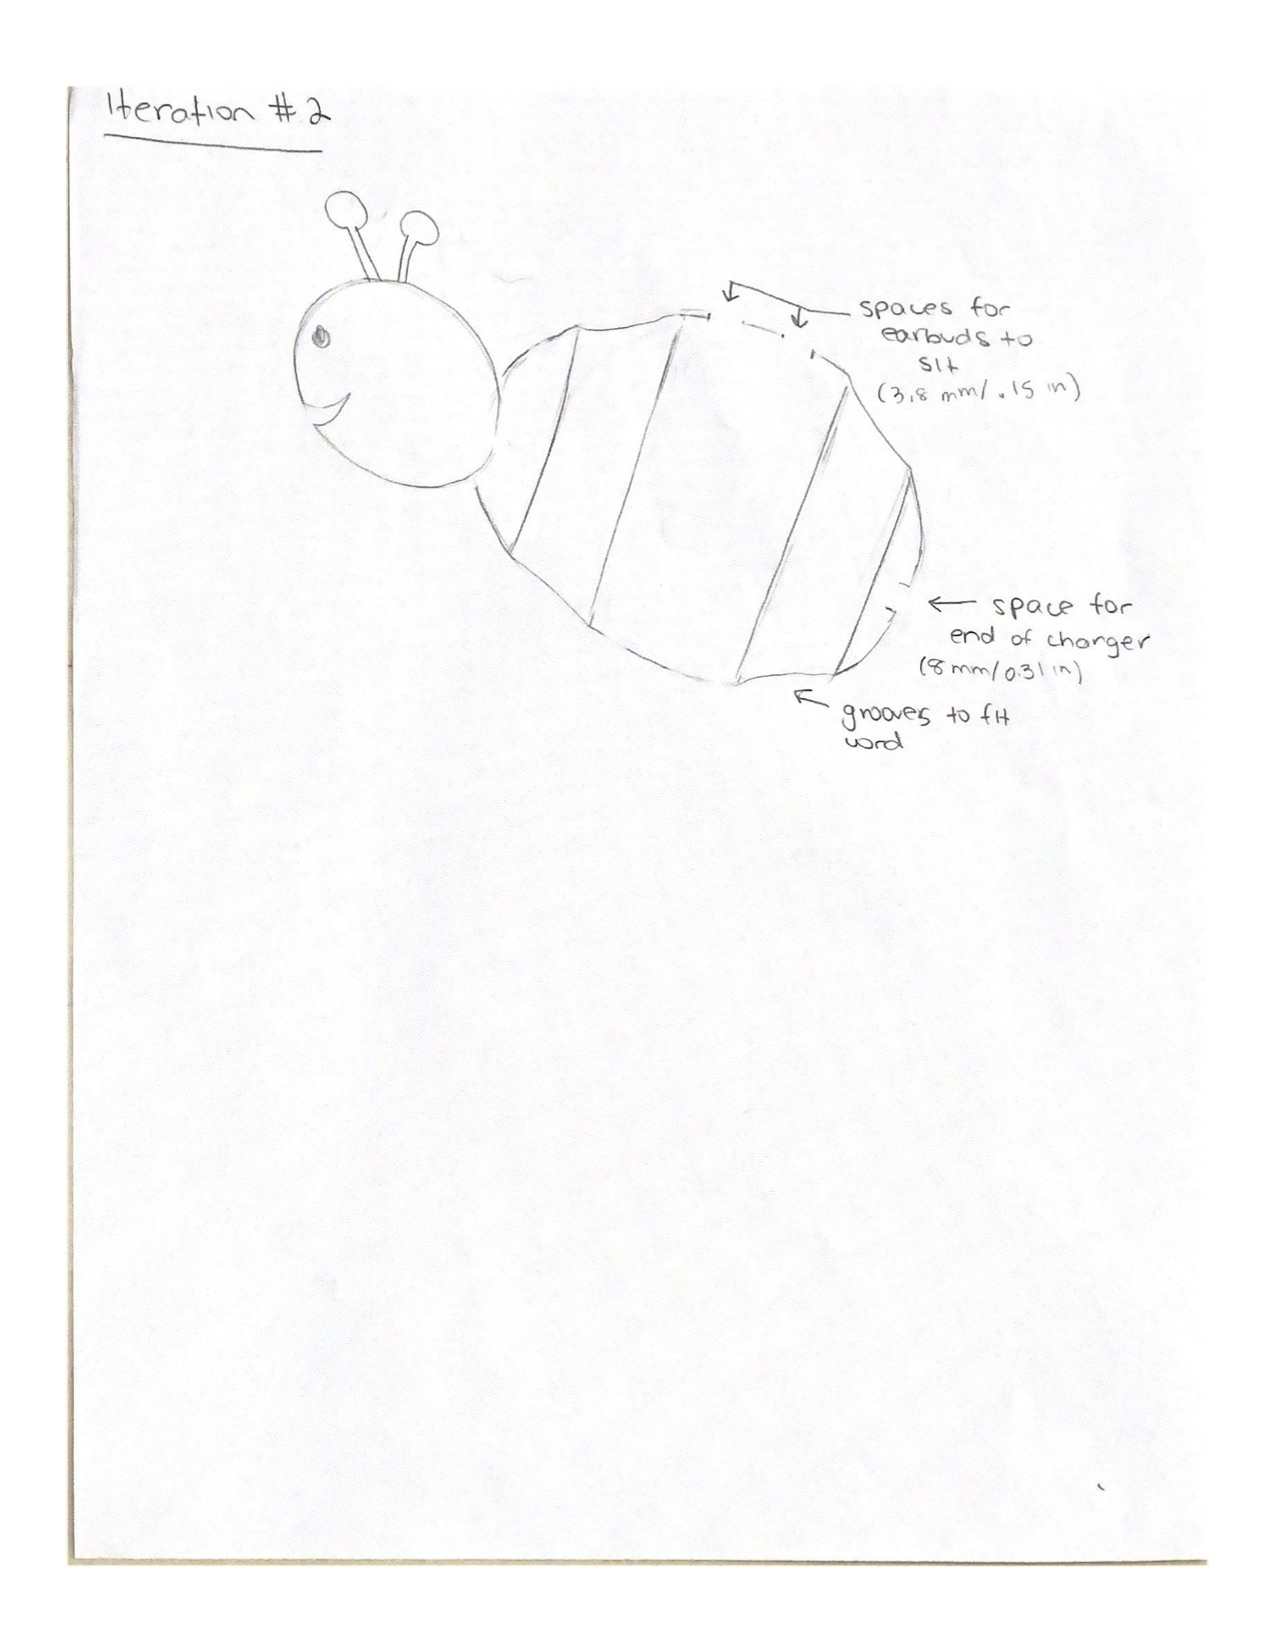 Iteration #2
spaces for
earbuds to
sit
(3.8 mm/.15 in)
space for
end of charger
(8mm/0.31 in)
grooves to fit
cord